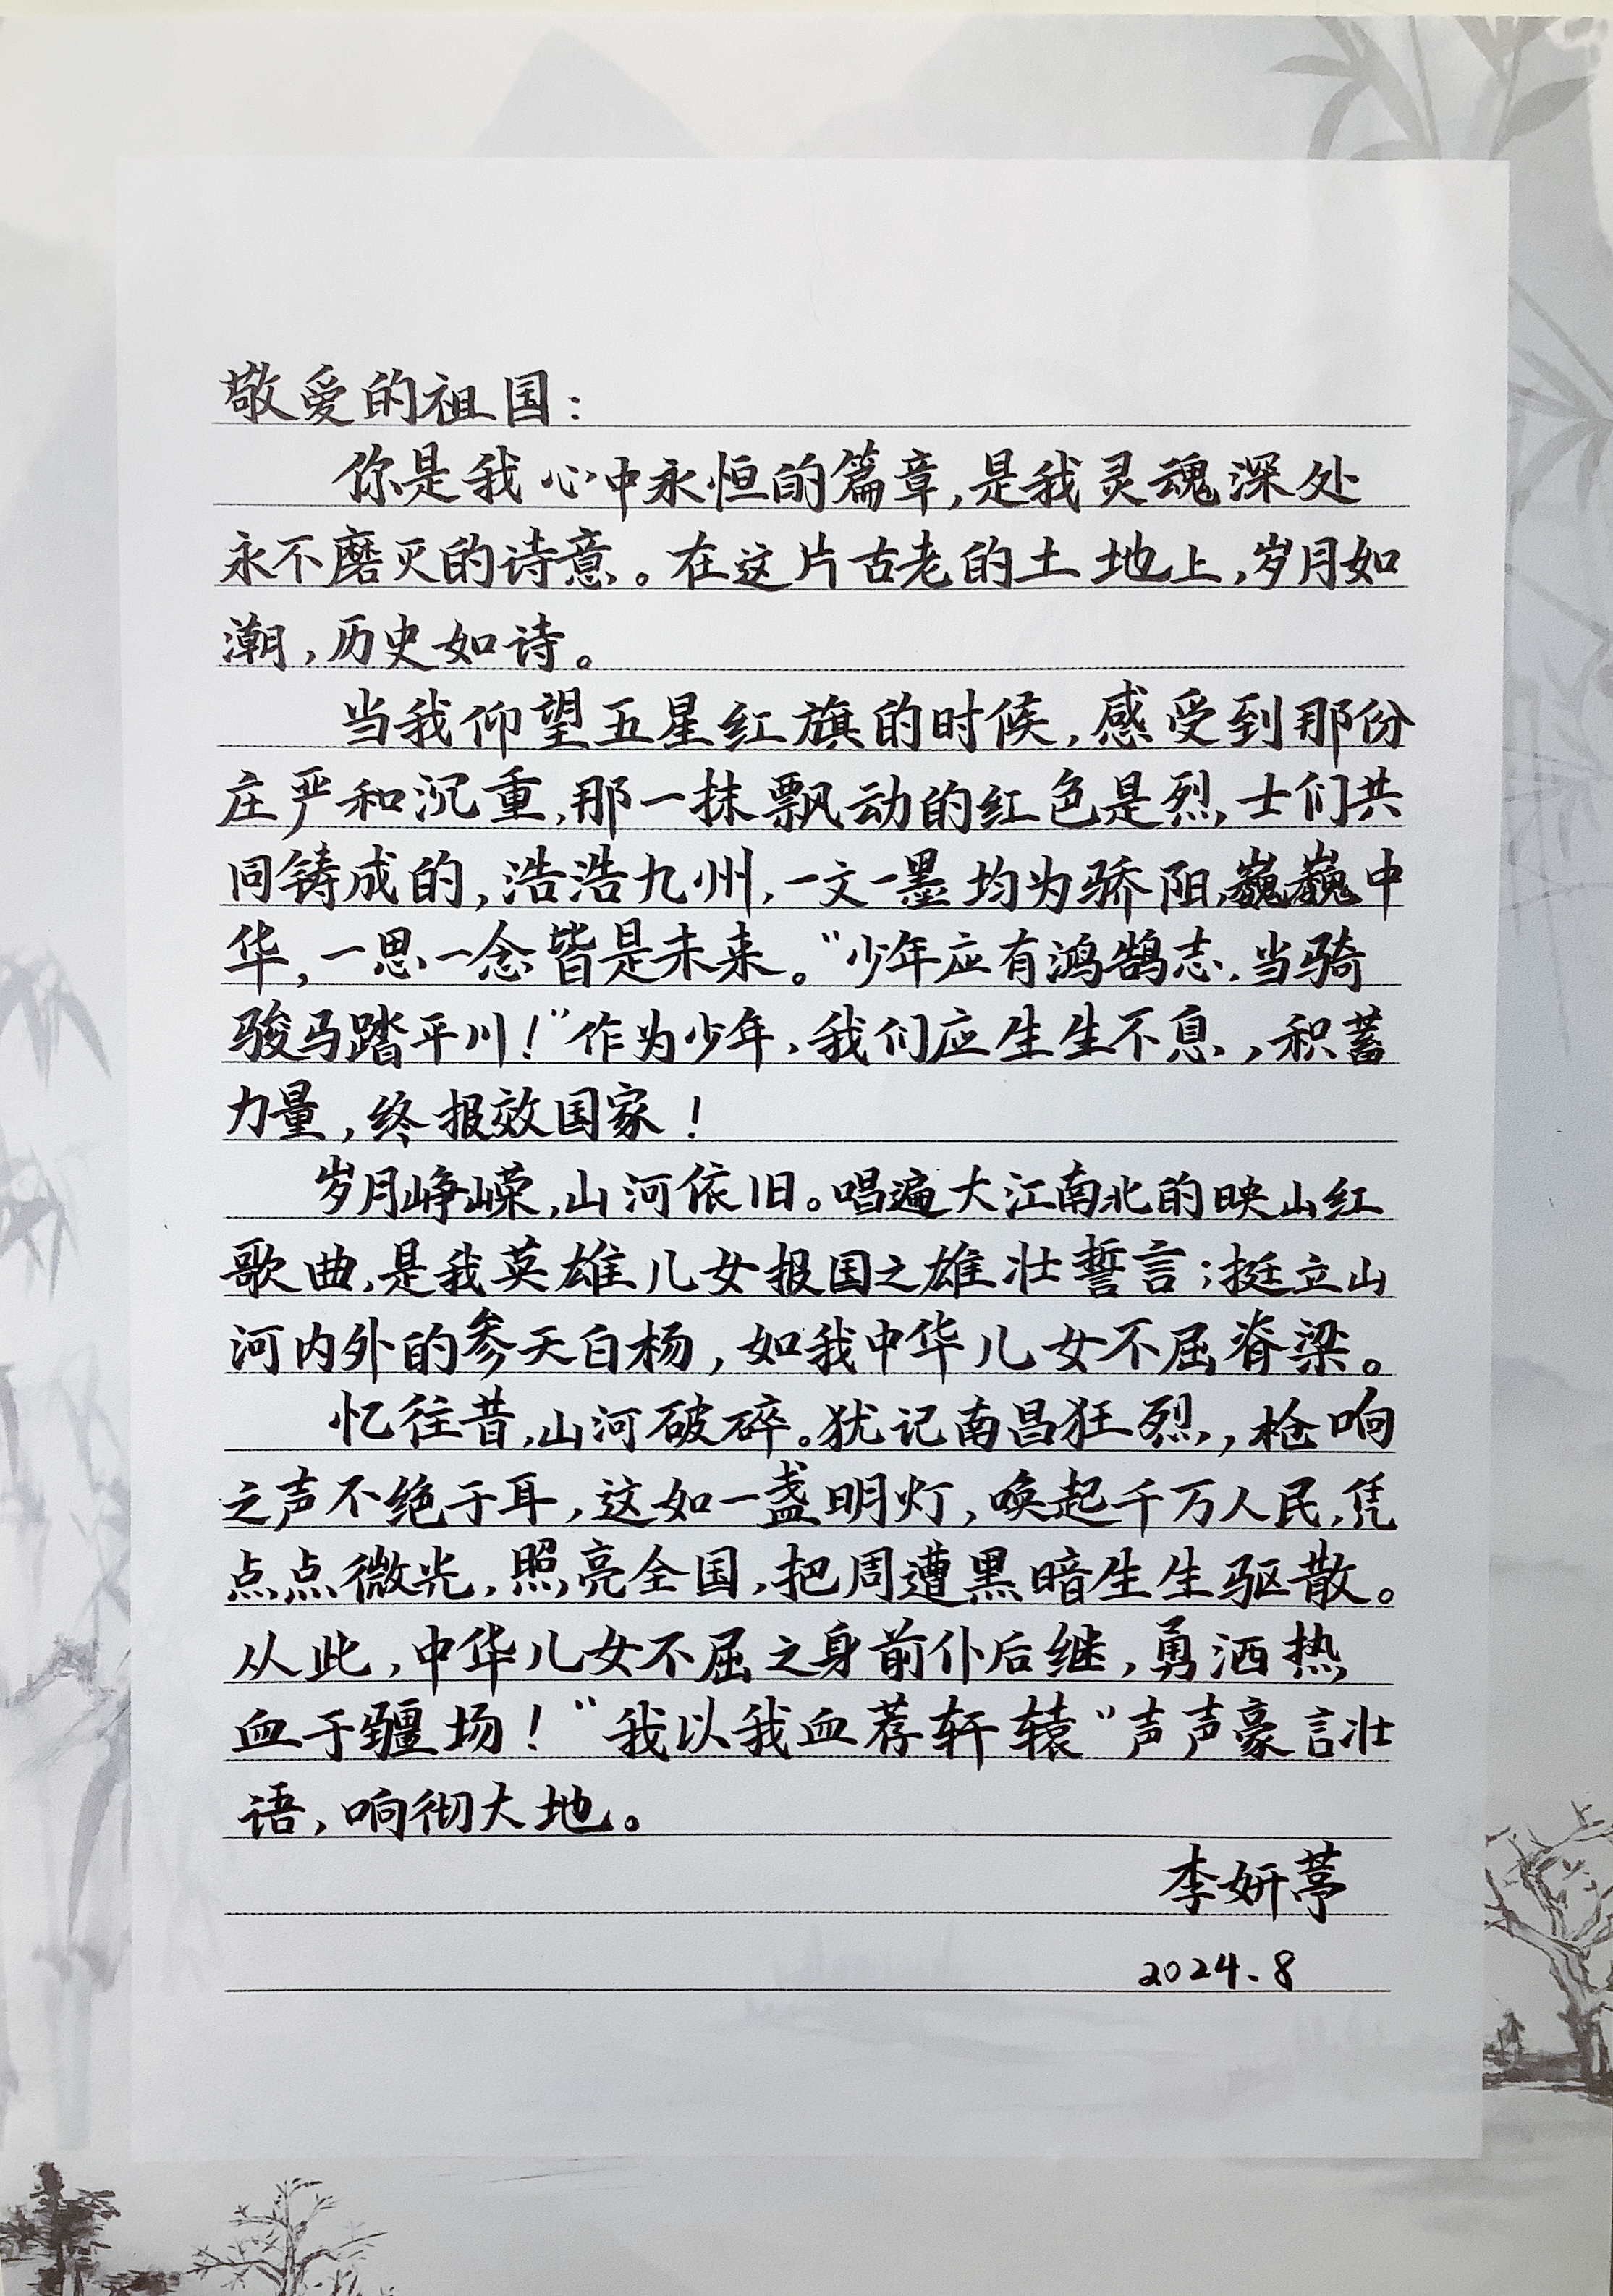 敬爱的祖国：
你是我心中永恒的篇章，是我灵魂深处
永不磨灭的诗意。在这片古老的土地上，岁月如
潮，历史如诗。
当我仰望五星红旗的时候，感受到那份
庄严和沉重，那一抹飘动的红色是烈士们共
同铸成的，浩浩九州，一文一墨均为骄阳，巍巍中
华，一思一念皆是未来。“少年应有鸿鹄志，当骑
骏马踏平川！”作为少年，我们应生生不息，积蓄
力量，终报效国家！
岁月峥嵘，山河依旧。唱遍大江南北的映山红
歌曲，是我英雄儿女报国之雄壮誓言；挺立山
河内外的参天白杨，如我中华儿女不屈脊梁。
忆往昔，山河破碎。犹记南昌狂烈，枪响
之声不绝于耳，这如一盏明灯，唤起千万人民，凭
点点微光，照亮全国，把周遭黑暗生生驱散。
从此，中华儿女不屈之身前仆后继，勇洒热
血于疆场！“我以我血荐轩辕”声声豪言壮
语，响彻大地。
李妍葶
2024.8